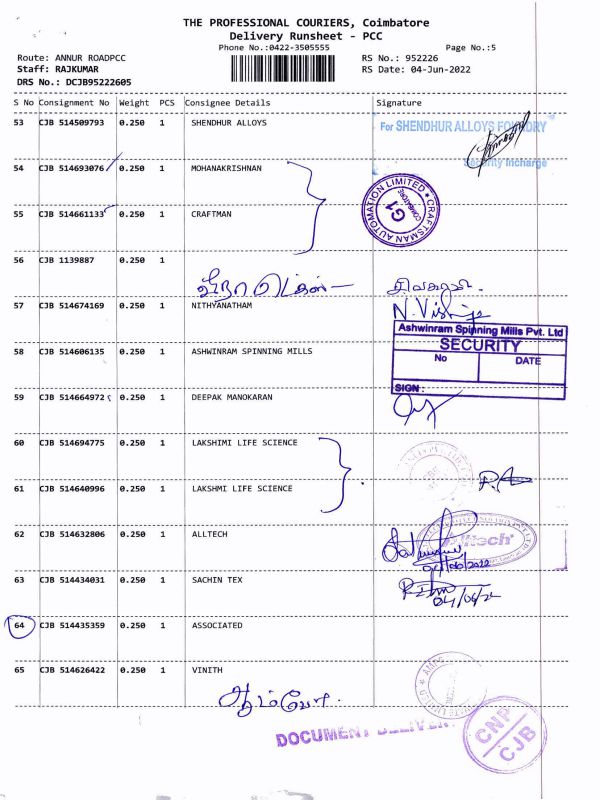 THE PROFESSIONAL COURIERS, Coimbatore
Delivery Runsheet - PCC
Phone No.:0422-3505555
Page No.:5
Route: ANNUR ROADPCC
RS No.: 952226
Staff: RAJKUMAR
RS Date: 04-Jun-2022
DRS No.: DCJB95222605
S No Consignment No Weight PCS Consignee Details Signature
53 CJB 514509793 0.250 1 SHENDHUR ALLOYS
For SHENDHUR ALLOYS FOUNDRY
Security Incharge
54 CJB 514693076 0.250 1 MOHANAKRISHNAN
CRAFTSMAN AUTOMATION LIMITED
COIMBATORE
G1
55 CJB 514661133 0.250 1 CRAFTMAN
56 CJB 1139887 0.250 1
57 CJB 514674169 0.250 1 NITHYANATHAM
Ashwinram Spinning Mills Pvt. Ltd
SECURITY
No DATE
SIGN :
58 CJB 514606135 0.250 1 ASHWINRAM SPINNING MILLS
59 CJB 514664972 0.250 1 DEEPAK MANOKARAN
60 CJB 514694775 0.250 1 LAKSHIMI LIFE SCIENCE
61 CJB 514640996 0.250 1 LAKSHMI LIFE SCIENCE
62 CJB 514632806 0.250 1 ALLTECH
Alltech
04/06/2022
63 CJB 514434031 0.250 1 SACHIN TEX
04/06/22
64 CJB 514435359 0.250 1 ASSOCIATED
65 CJB 514626422 0.250 1 VINITH
DOCUMENT DELIVERY
CNP
CJB